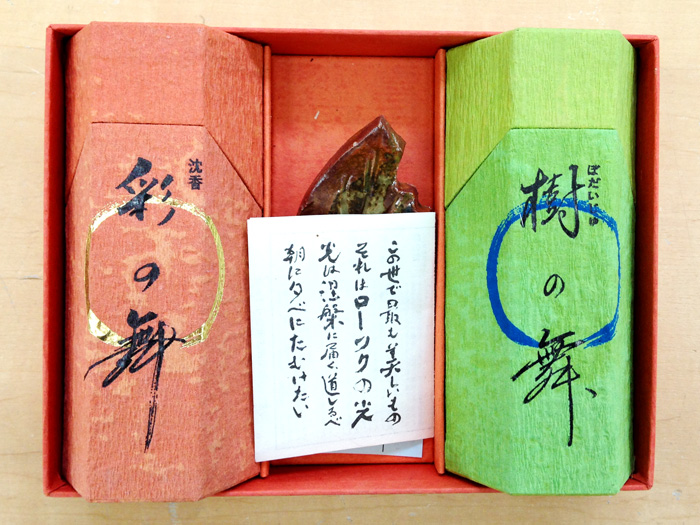 沈香
彩の舞
この世で最も美しいもの
それはローソクの光
光は涅槃に届く道しるべ
朝に夕べにたむけたい
ぼだいじゅ
樹の舞